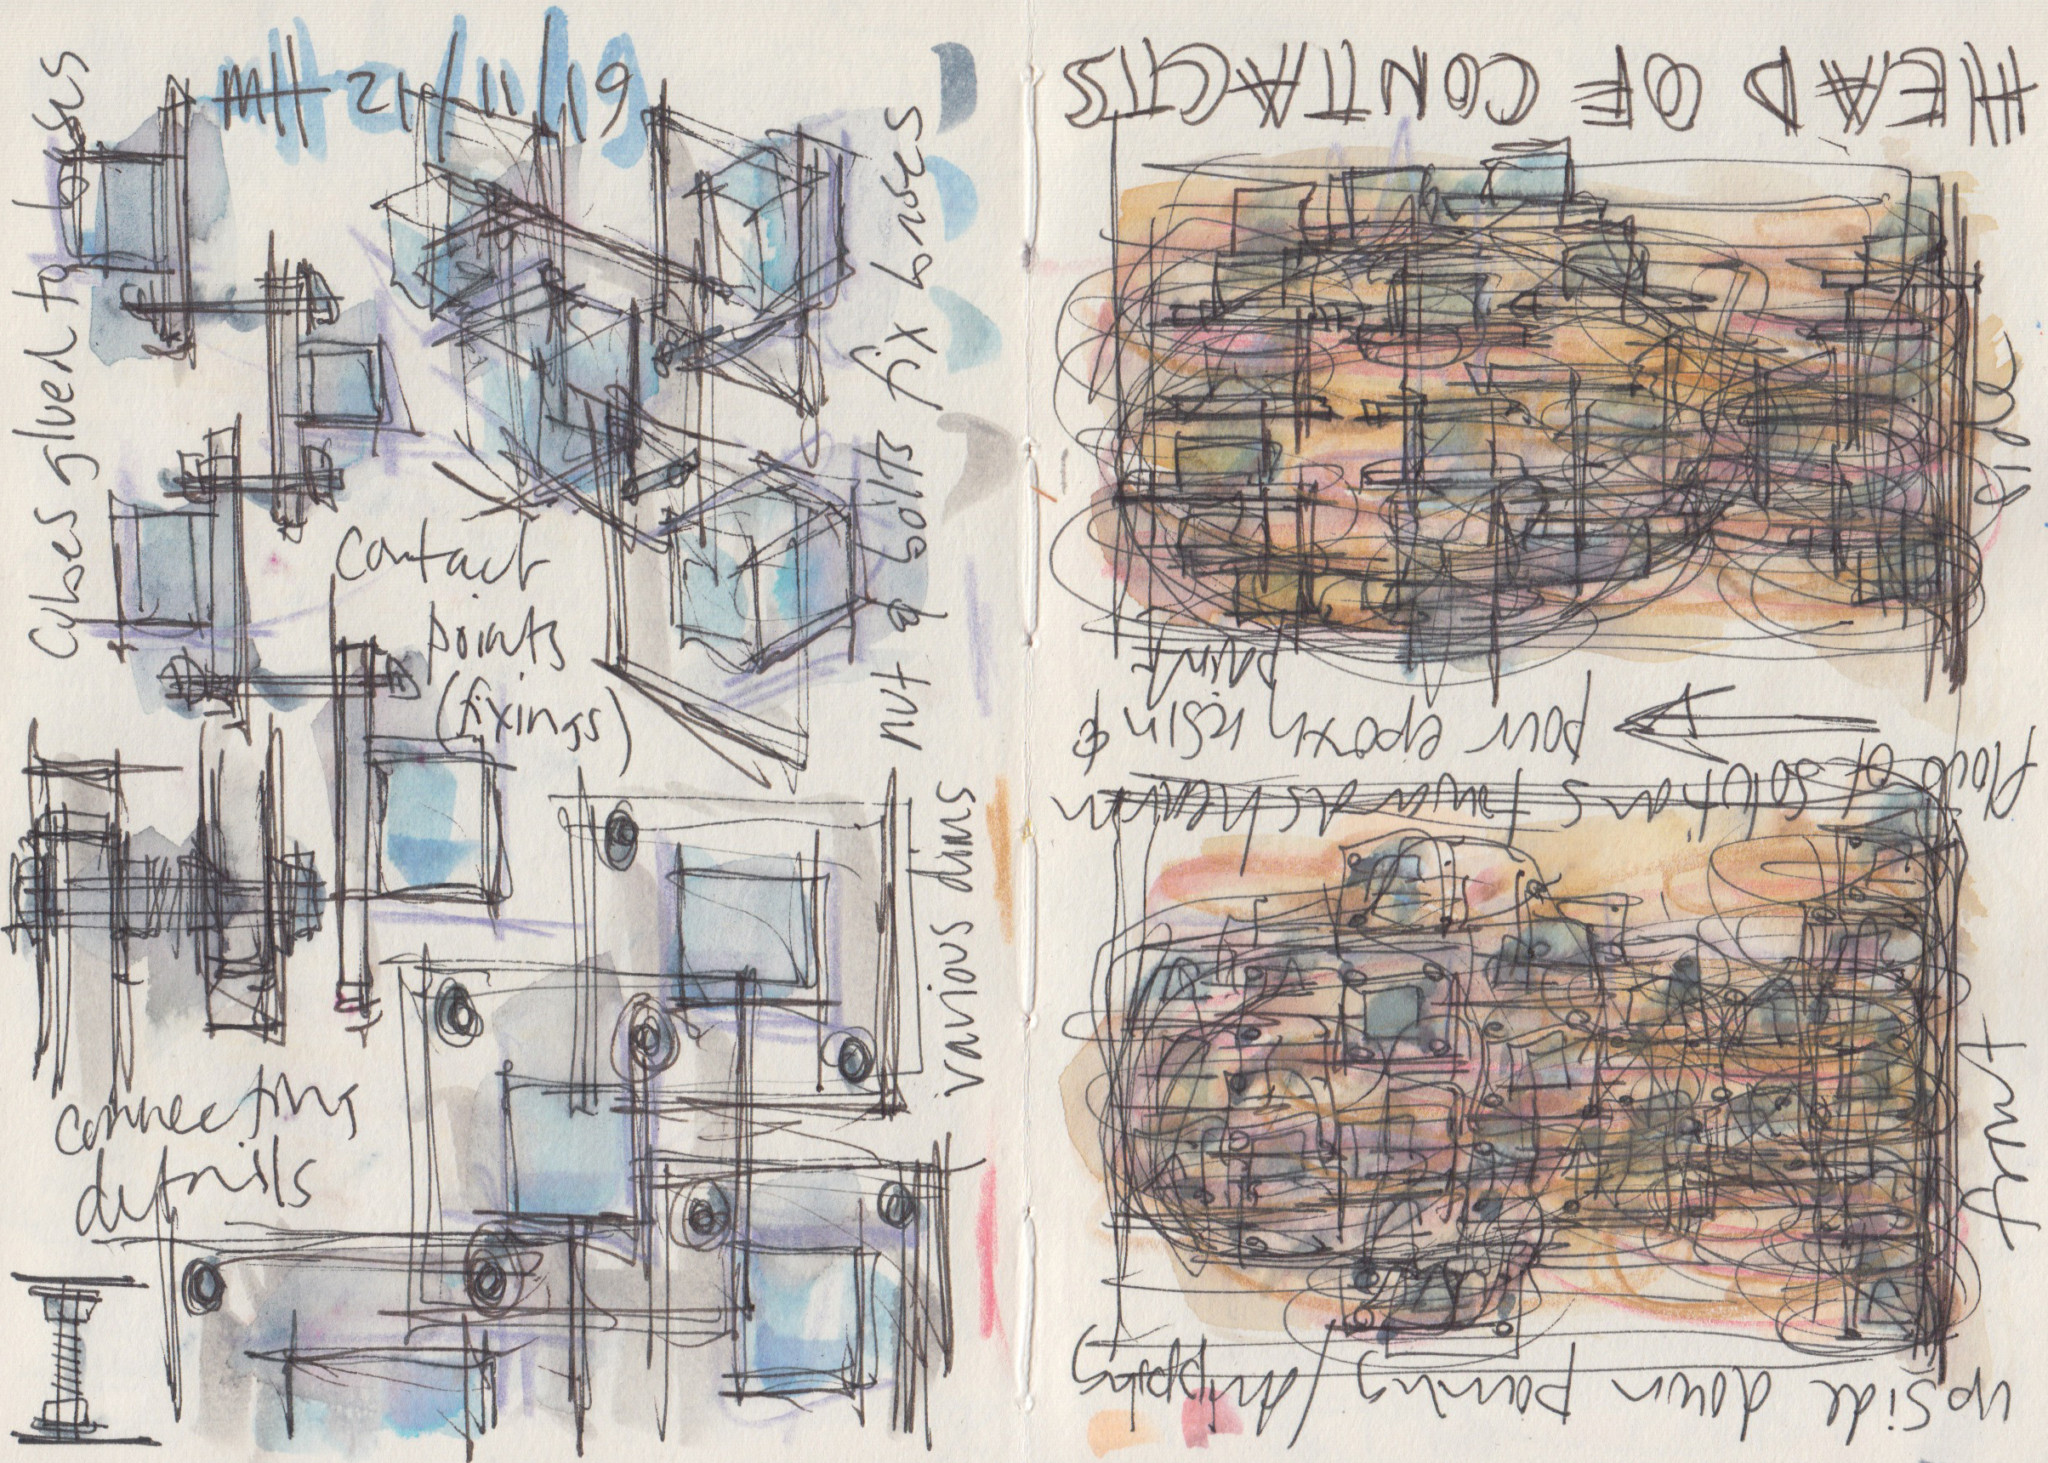 MH 21/11/19
cubes glued to bases
nut & bolts fix bases
contact
points
(fixings)
various dims
connecting
details
HEAD OF CONTACTS
pour epoxy resin &
paint
flow of solutions towards heaven
upside down pouring/dripping